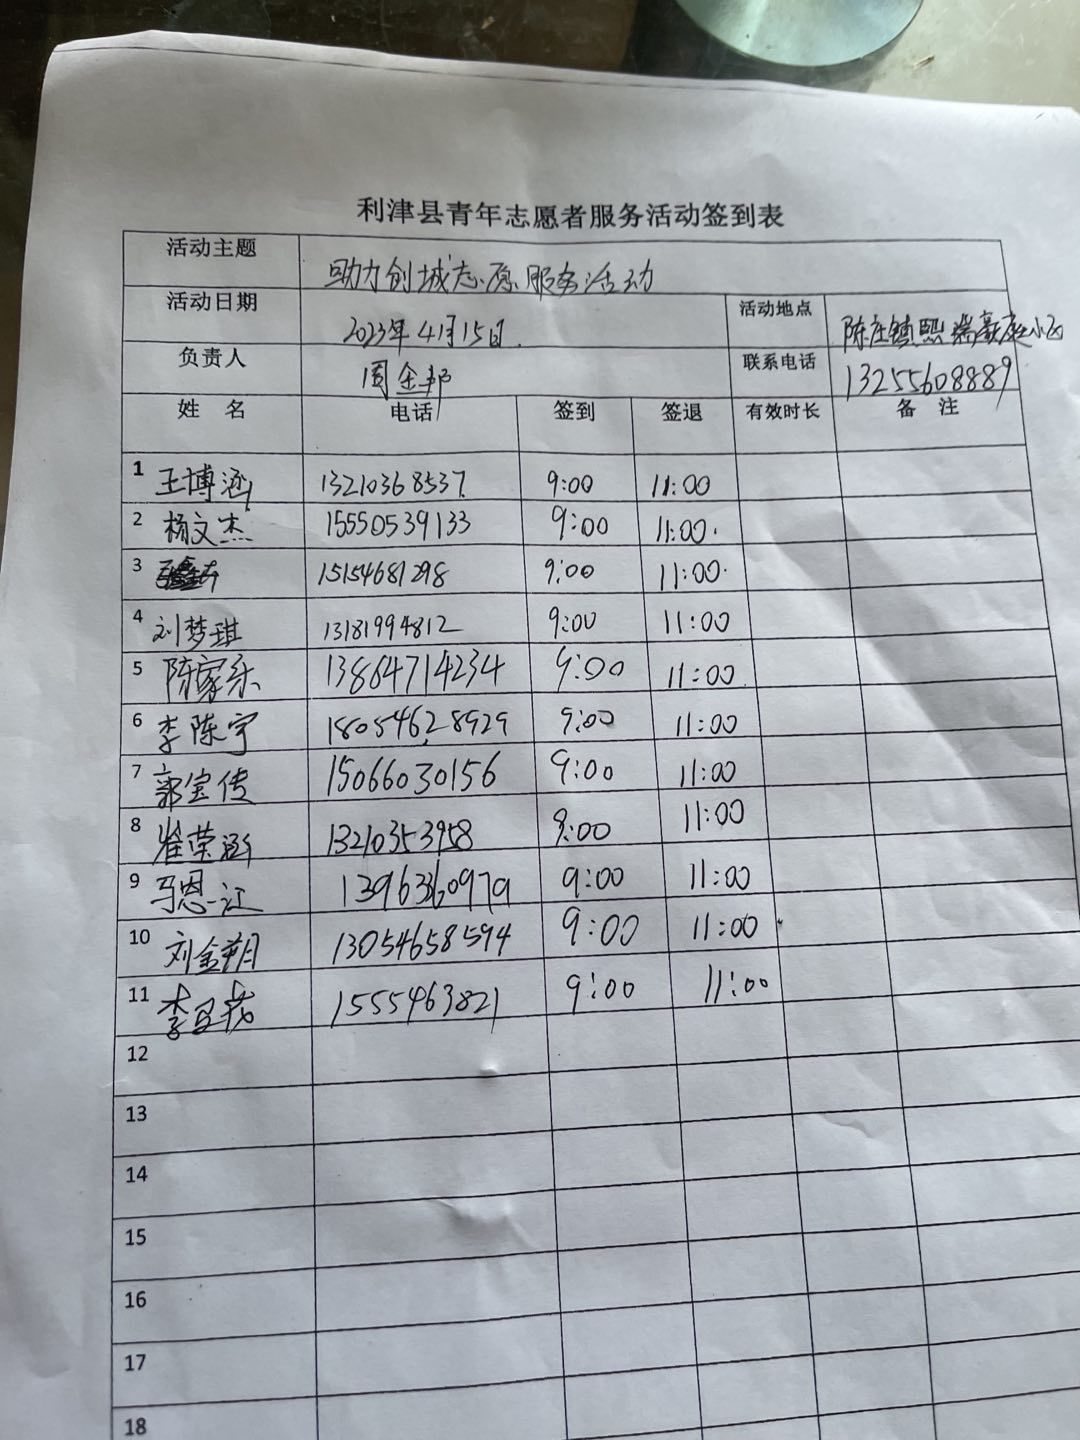 利津县青年志愿者服务活动签到表
活动主题 助力创城志愿服务活动
活动日期 2023年4月15日 活动地点 陈庄镇熙瑞豪庭小区
负责人 周金邦 联系电话 13255608889
姓 名 电话 签到 签退 有效时长 备 注
1 王博涵 13210368537 9:00 11:00
2 杨文杰 15550539133 9:00 11:00
3 15154681298 9:00 11:00
4 刘梦琪 13181994812 9:00 11:00
5 陈家乐 13864714234 9:00 11:00
6 李陈宇 18054628929 9:00 11:00
7 郭宝传 15066030156 9:00 11:00
8 崔荣涵 13210353958 9:00 11:00
9 马恩江 9:00 11:00
10 刘金朔 13054658594 9:00 11:00
11 李 茂 1555463821 9:00 11:00
12
13
14
15
16
17
18